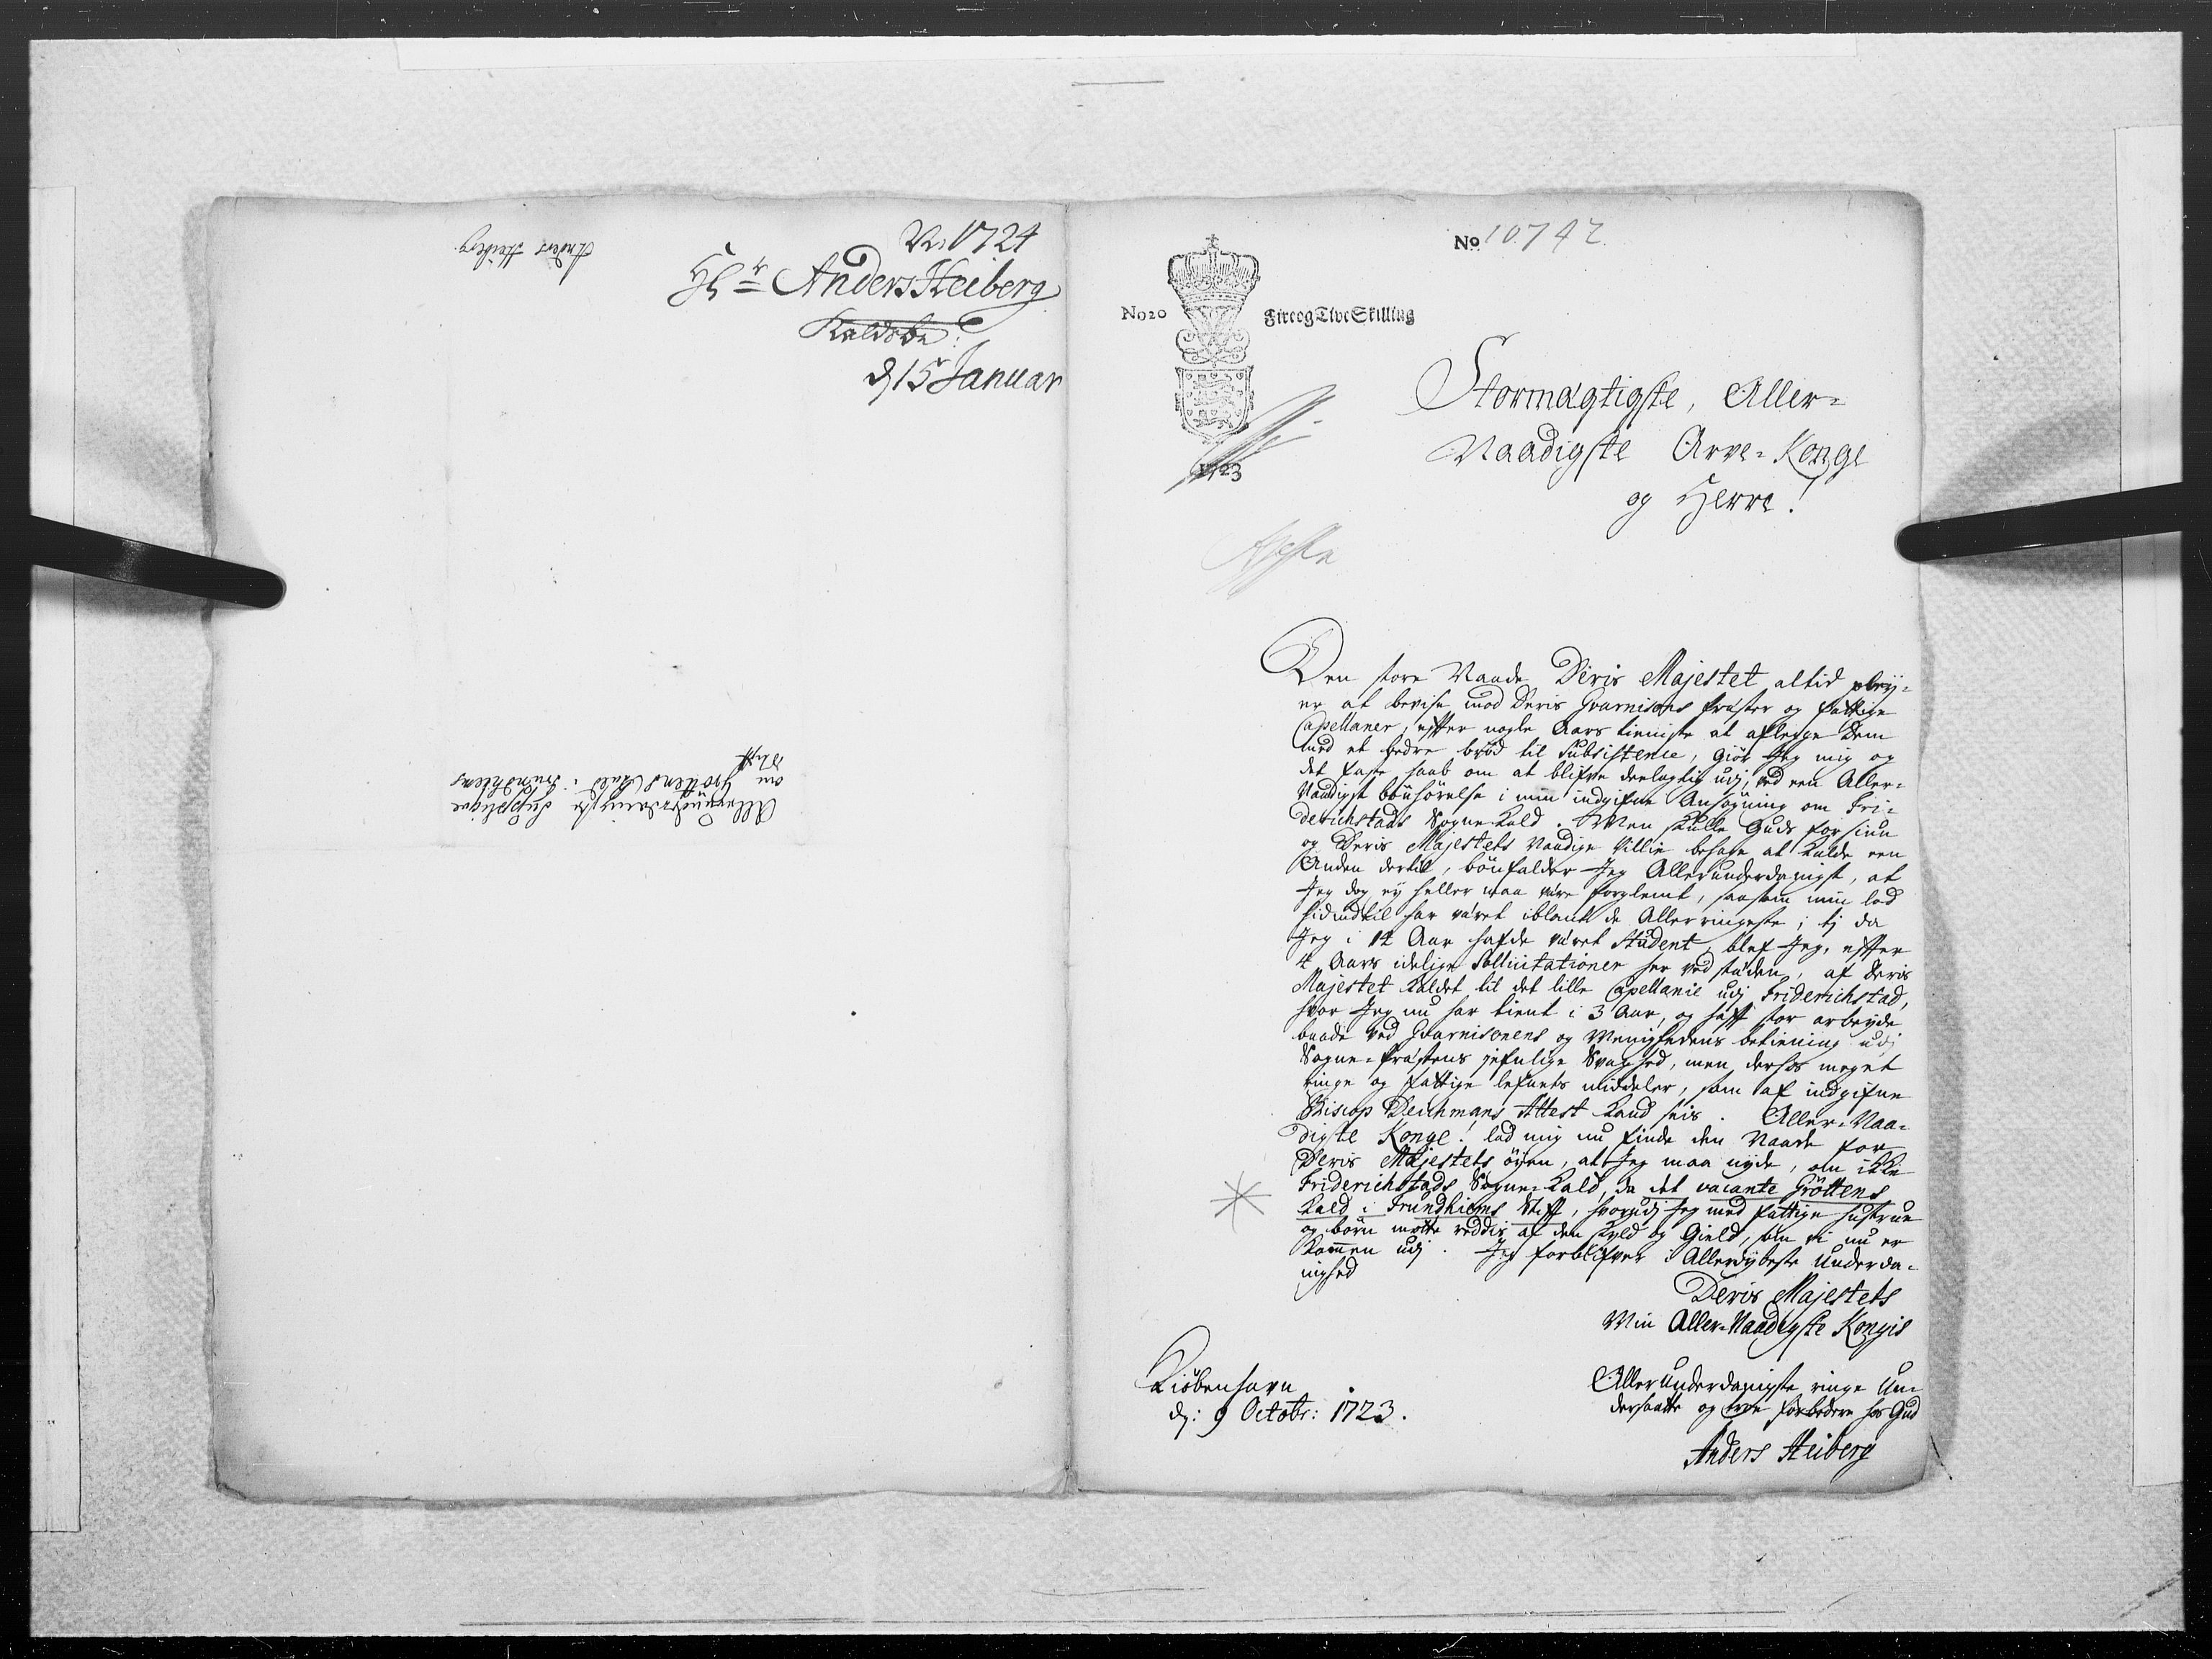 Anders Heiberg
No 1724
Hr Anders Heiberg
Kaldsbr:
d 15 Januar
Allerunderdanigste Supplique
om Gröttens Kald i Trundhiems
Stift
No 10742
No20
Fire og Tive Skilling
1723
Stormægtigste, Aller-
Naadigste Arve-Konge
og Herre!
Den store Naade Deris Majestet altid pley-
er at bevise mod Deris Guarnisons Præster og fattige
Capellaner, efter nogle Aars tieniste at aflegge dem
med et bedre brød til Subsistence, giör Jeg mig og
det faste haab om at blifve deelagtig udj, ved een Aller-
Naadigst bönhörelse i min indgifne Ansögning om Fri-
derichstads Sogne-Kald. Men skulle Guds forsiun
og Deris Majestets Naadige Villie behage at kalde een
Anden dertil, bönfalder Jeg Allerunderdanigst, at
Jeg dog ey heller maa være forglemt, saasom min lod
hidindtil har været iblant de Allerringeste; tj da
Jeg i 14 Aar hafde været Student, blef Jeg, efter
4 Aars idelige Sollicitationer her ved stæden, af Deris
Majestet kaldet til det lille Capellanie udj Friderichstad,
hvor Jeg nu har tient i 3 Aar, og haft stor arbeyde
baade ved Guarnisonens og Menighedens betiening udj
Sogne-Præstens jefnlige Svaghed, men derhos meget
ringe og fattige lefnets middeler, som af indgifne
Biscop Deichmans Attest kand sees. Aller-Naa-
digste Konge! lad mig nu finde den Naade for
Deris Majestets öyen, at Jeg maa nyde, om ikke
Friderichstads Sogne-Kald, da det vacante Gröttens
Kald i Trundhiems Stift, hvorudj Jeg med fattige hustrue
og börn motte reddis af den skyld og Gield, som vi nu er
Kommen udj. Jeg forblifver i Allerdybeste underda-
nighed
Deris Majestets
Min Aller-Naadigste Kongis
Kiöbenhavn
d: 9 Octobr: 1723.
Allerunderdanigste ringe Un-
dersaatte og troe forbedere hos Gud
Anders Heiberg